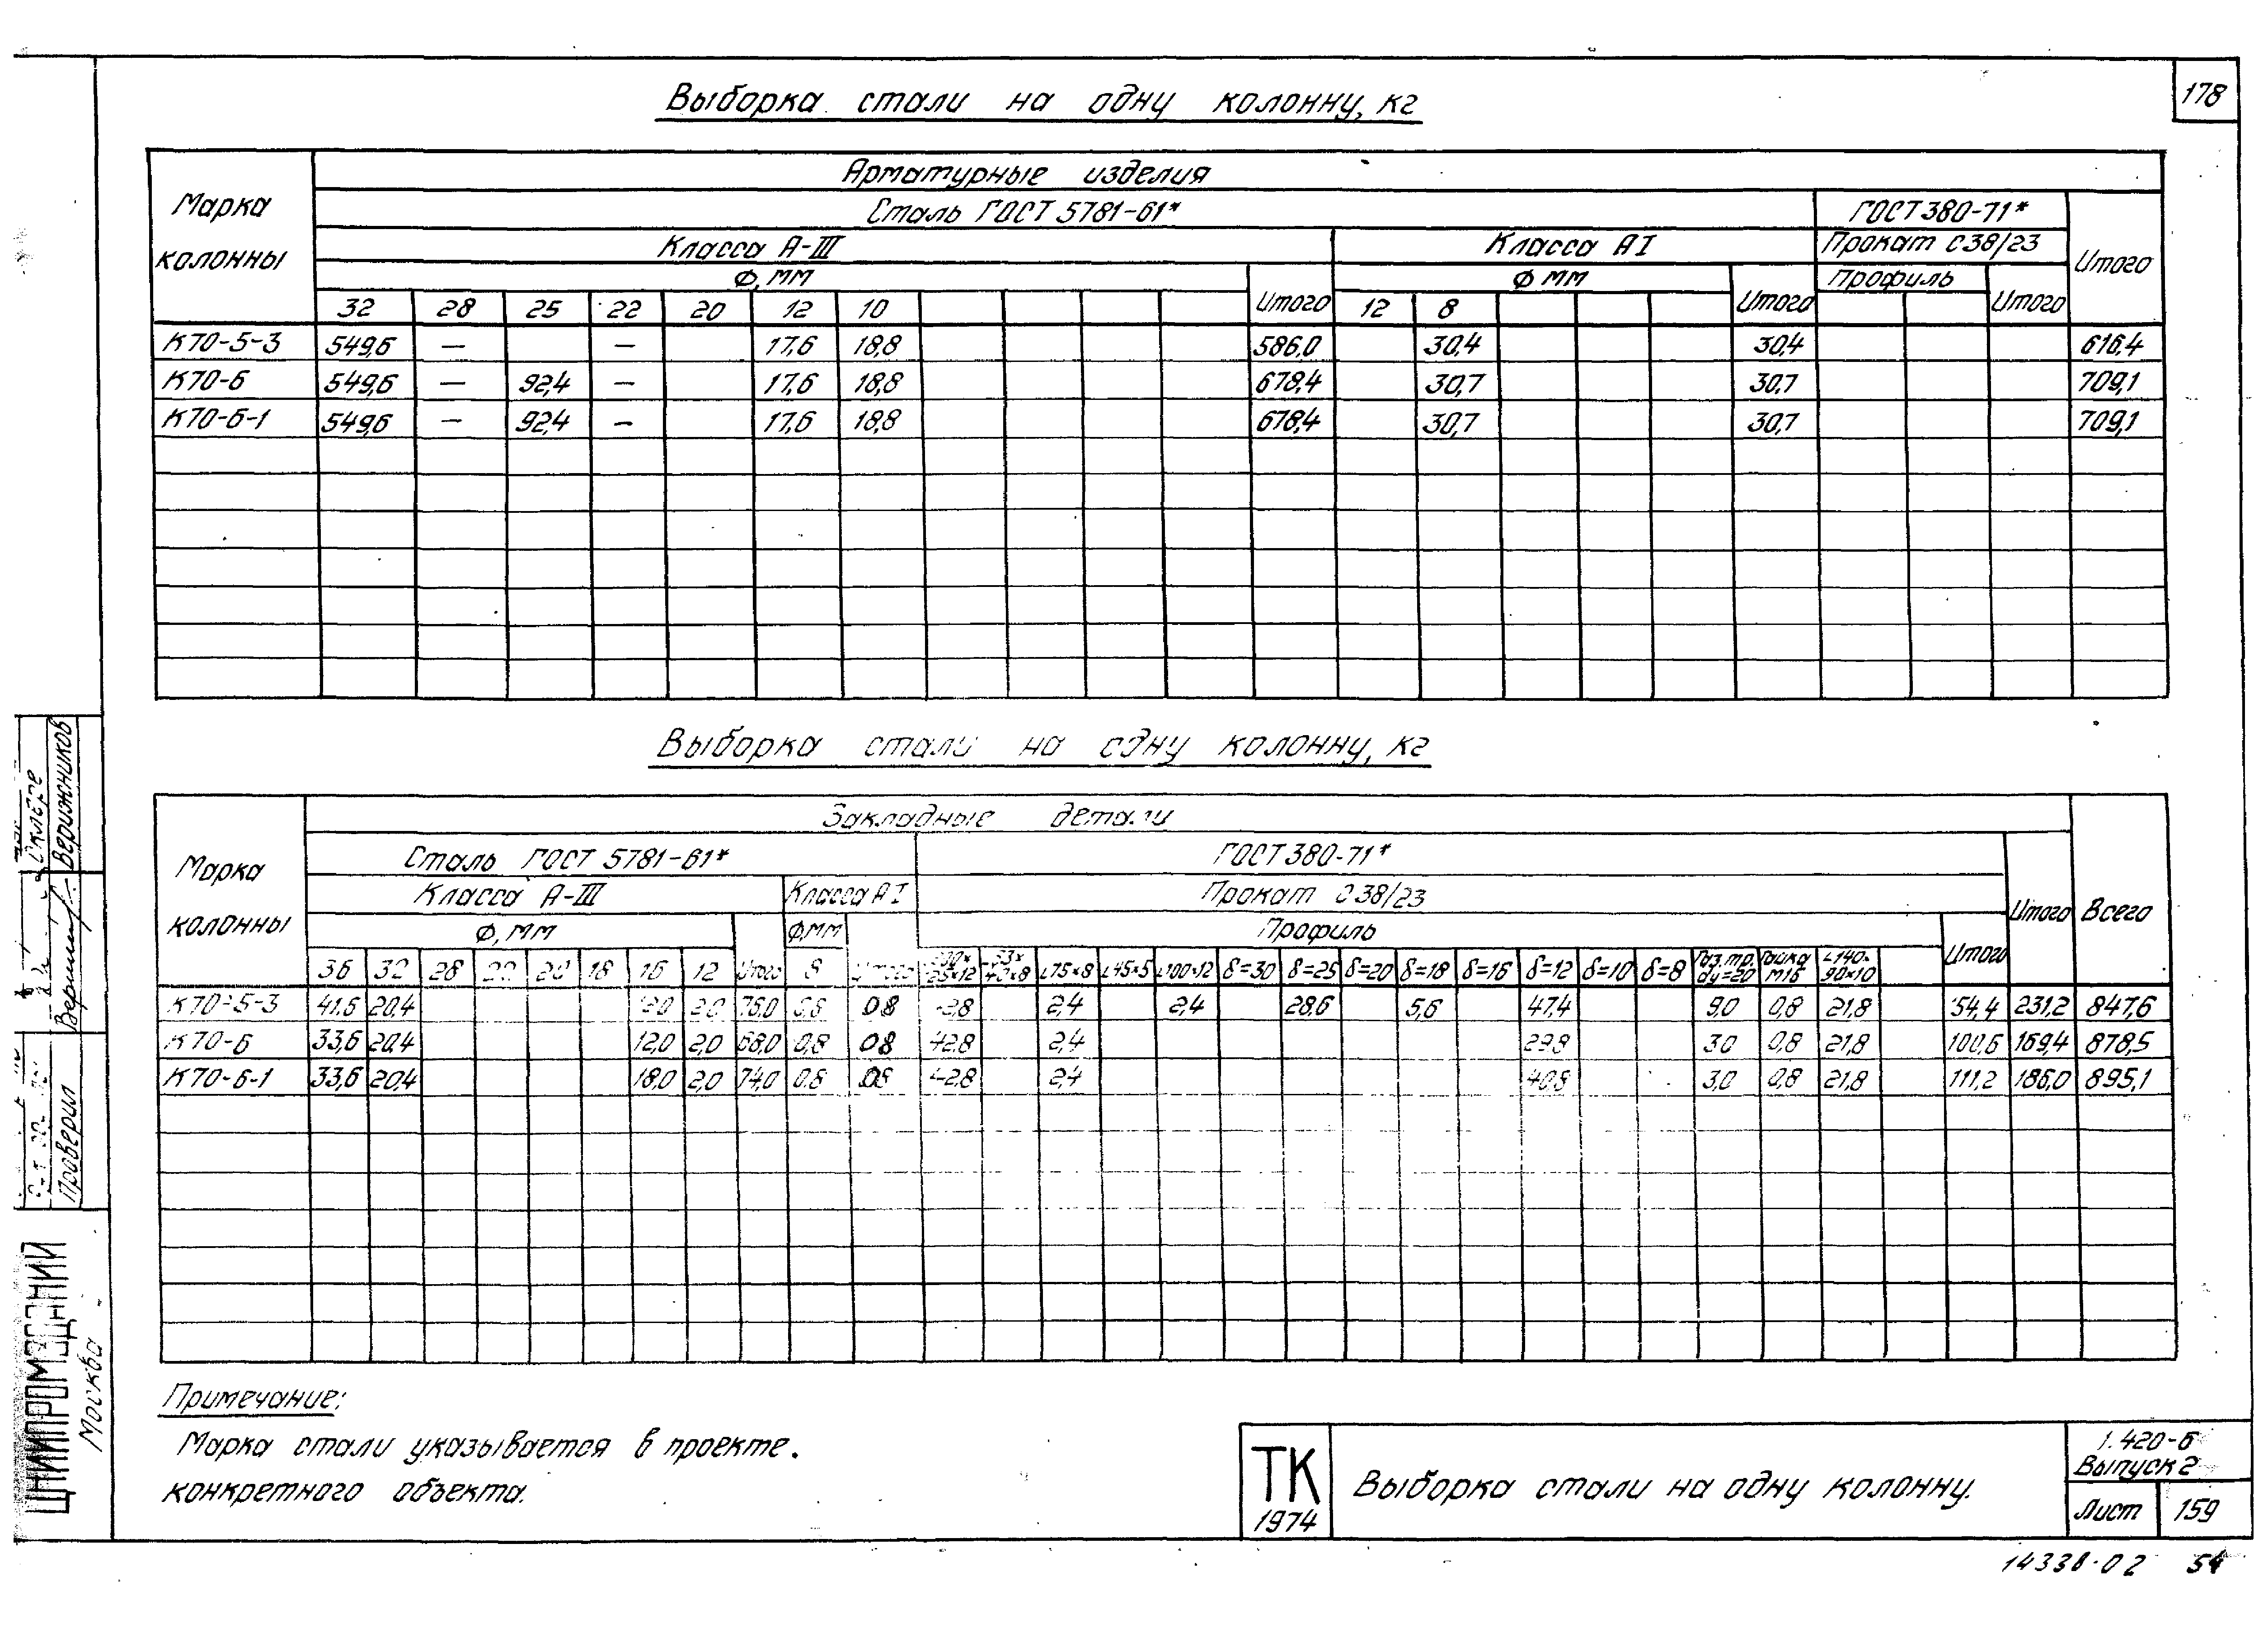 178
Выборка стали на одну колонну, кг
Марка колонны
Арматурные изделия
Сталь ГОСТ 5781-61* ГОСТ 380-71* Итого
Класса А-III Класса АI Прокат С38/23
Ф, мм Итого Ф мм Итого Профиль Итого
32 28 25 22 20 12 10 12 8
К70-5-3 549,6 — — 17,6 18,8 586,0 30,4 30,4 616,4
К70-6 549,6 — 92,4 — 17,6 18,8 678,4 30,7 30,7 709,1
К70-6-1 549,6 — 92,4 — 17,6 18,8 678,4 30,7 30,7 709,1
Выборка стали на одну колонну, кг
Марка колонны
Закладные детали Всего
Сталь ГОСТ 5781-61* ГОСТ 380-71* Итого
Класса А-III Класса АI Прокат С38/23
Ф, мм Ф,мм Профиль Итого
36 32 28 20 18 16 12 Итого 8 Итого L75×8 L45×5 L100×12 δ=30 δ=25 δ=20 δ=18 δ=16 δ=12 δ=10 δ=8 Газ.тр. dy=20 Гайка М16 L140×90×10
К70-5-3 41,6 20,4 2,0 76,0 0,8 0,8 2,4 2,4 28,6 5,6 47,4 9,0 0,8 21,8 231,2 847,6
К70-6 33,6 20,4 12,0 2,0 68,0 0,8 0,8 42,8 2,4 29,8 3,0 0,8 21,8 100,6 169,4 878,5
К70-6-1 33,6 20,4 18,0 2,0 74,0 0,8 0,8 42,8 2,4 40,8 3,0 0,8 21,8 111,2 186,0 895,1
Примечание:
Марка стали указывается в проекте.
конкретного объекта.
ТК
1974
Выборка стали на одну колонну.
1.420-6
Выпуск 2
Лист 159
14338-02 54
Верижников
Проверил
ЦНИИПРОМЗДАНИЙ
Москва